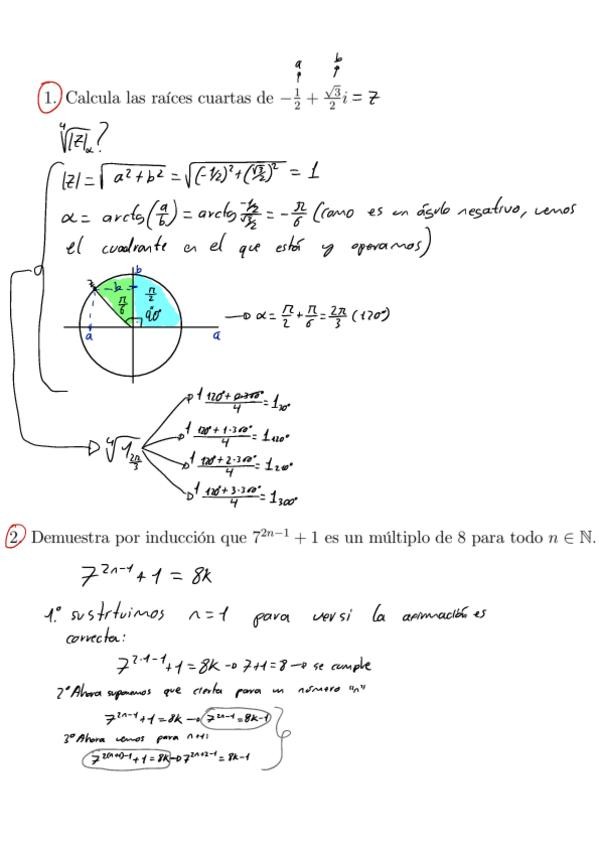 a b
1. Calcula las raíces cuartas de −1/2 + √3/2 i = z
⁴√|z|α ?
|z| = √(a² + b²) = √((-1/2)² + (√3/2)²) = 1
α = arctg(a/b) = arctg (-1/2)/(√3/2) = -π/6 (como es un ángulo negativo, vemos
el cuadrante en el que está y operamos)
b
z -b π/2
π/6 90°
a a
→ α = π/2 + π/6 = 2π/3 (120°)
⁴√1 2π/3
1 (120°+0·360°)/4 = 1 30°
1 (120°+1·360°)/4 = 1 120°
1 (120°+2·360°)/4 = 1 210°
1 (120°+3·360°)/4 = 1 300°
2. Demuestra por inducción que 7²ⁿ⁻¹ + 1 es un múltiplo de 8 para todo n ∈ ℕ.
7²ⁿ⁻¹ + 1 = 8k
1.° sustituimos n = 1 para ver si la afirmación es
correcta:
7²·¹⁻¹ + 1 = 8k → 7+1 = 8 → se cumple
2° Ahora suponemos que cierta para un número "n"
7²ⁿ⁻¹ + 1 = 8k → 7²ⁿ⁻¹ = 8k-1
3° Ahora vemos para n+1:
7²⁽ⁿ⁺¹⁾⁻¹ + 1 = 8k → 7²ⁿ⁺²⁻¹ = 8k-1